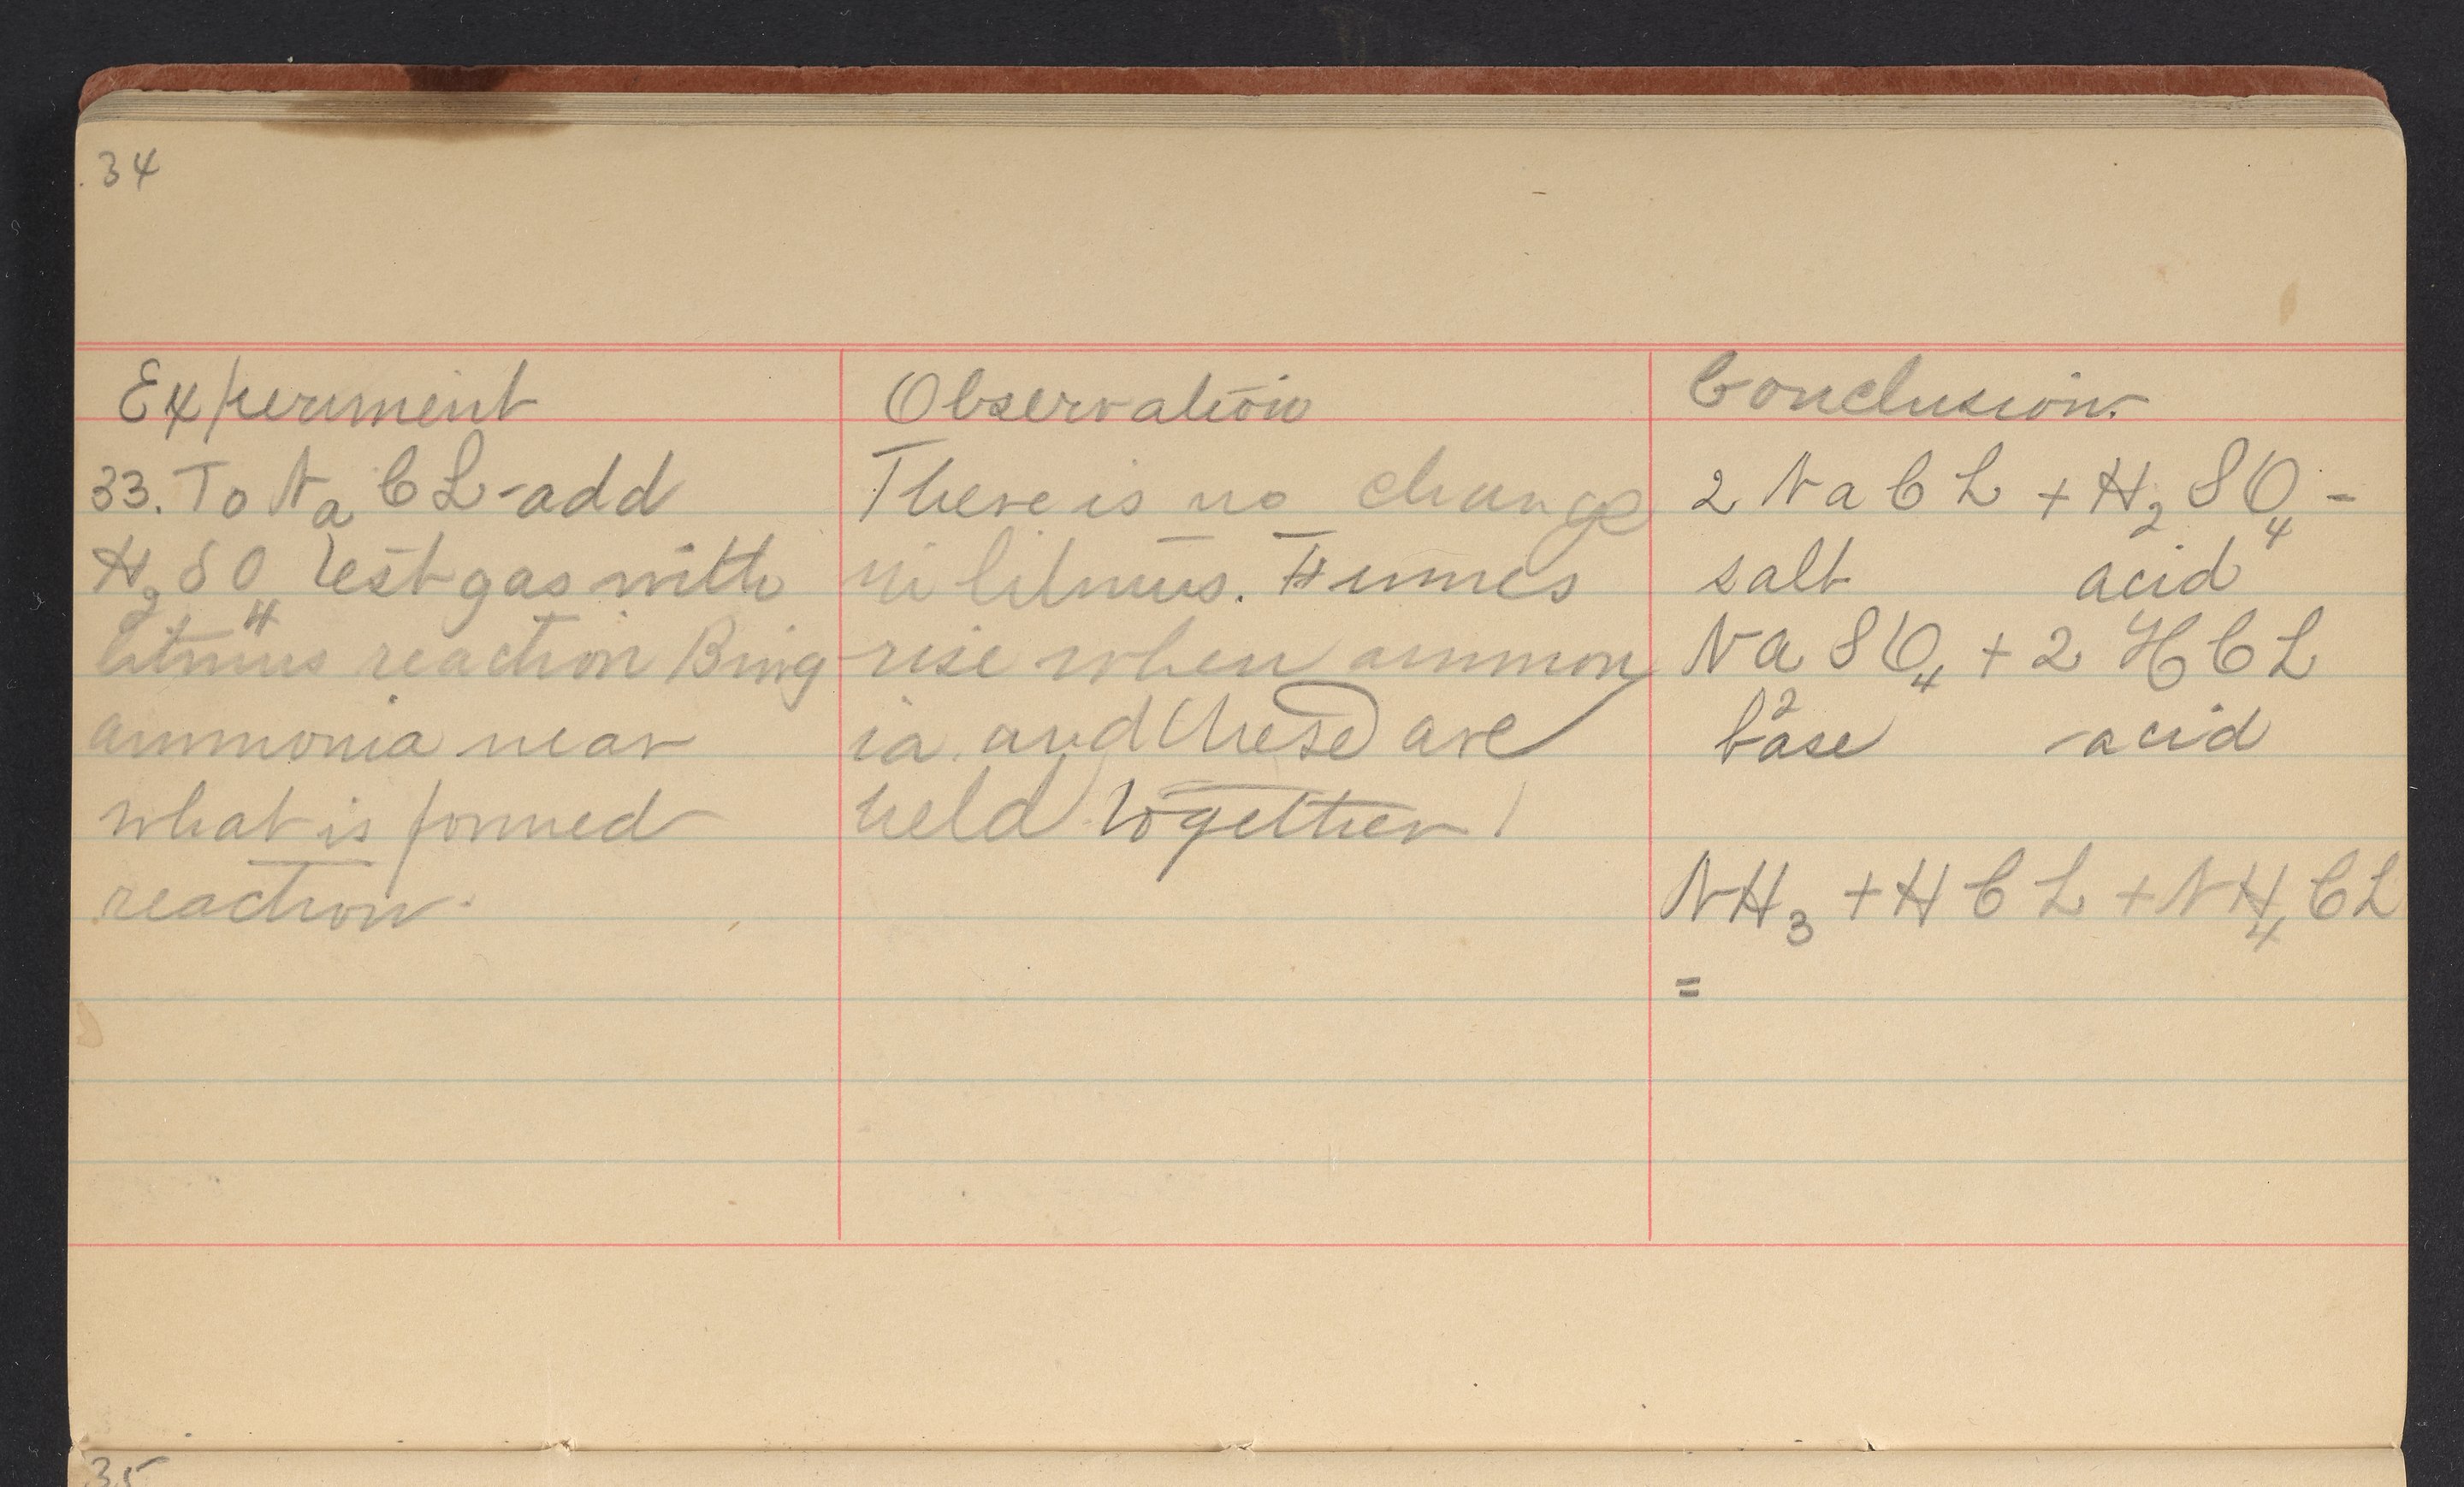 34
Experiment
33. To NaCL-add
H2SO4 test gas with
litmus reaction Bring
ammonia near
what is formed
reaction.
Observation
There is no change
in litmus. Fumes
rise when ammon
ia and these are
held together!
Conclusion.
2 NaCL + H2SO4 -
salt acid
Na2SO4 + 2 HCL
base acid
NH3 + HCL + NH4CL
=
35